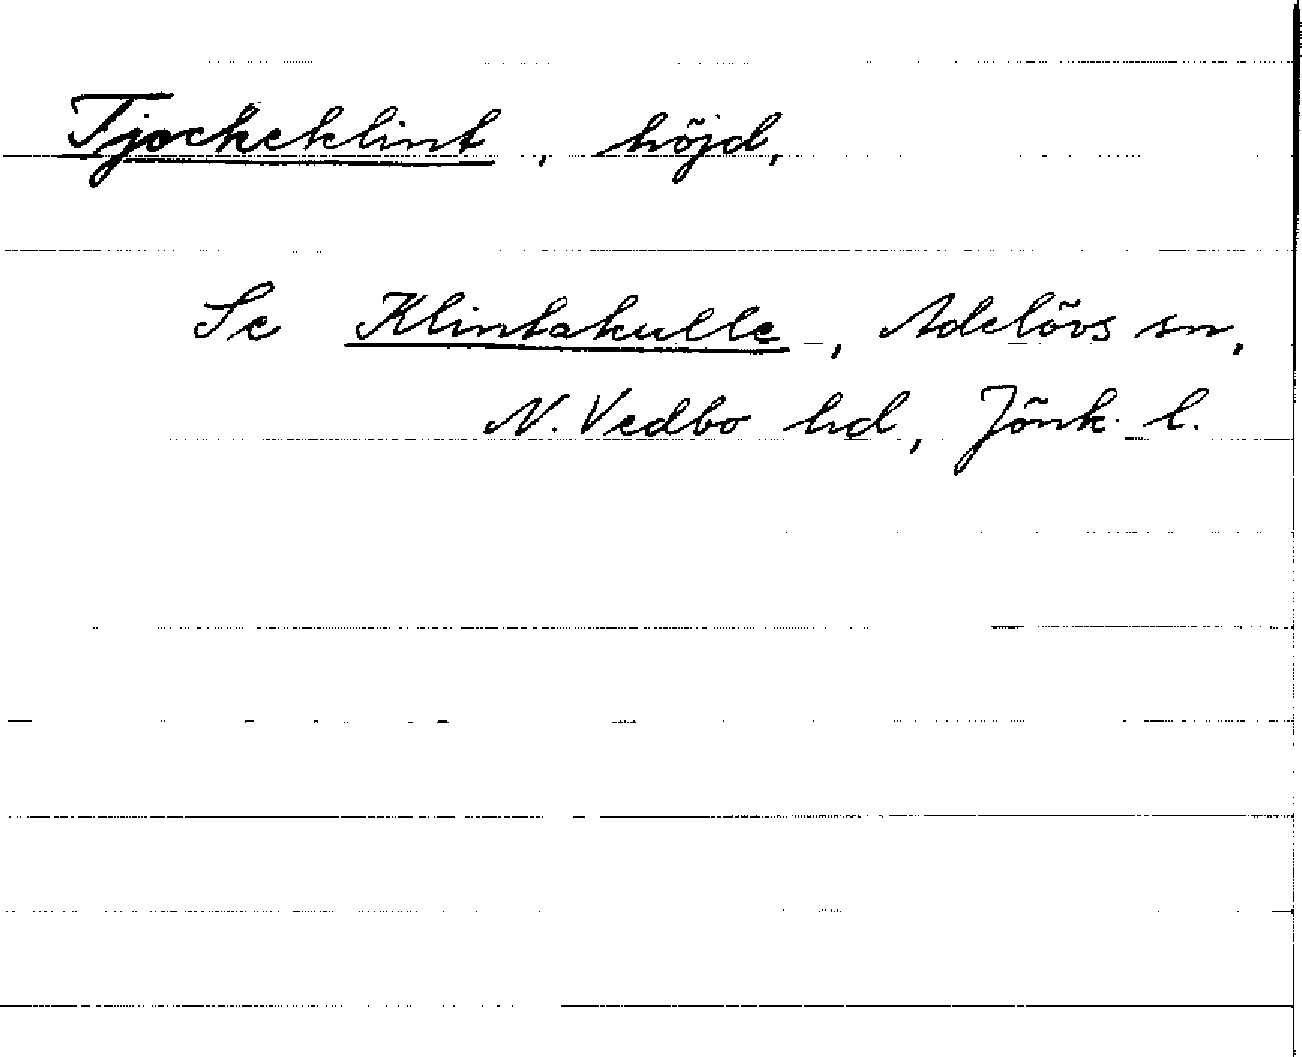 Tjockeklint, höjd,
Se Klintakulle, Adelövs sn,
N. Vedbo hd, Jönk. l.